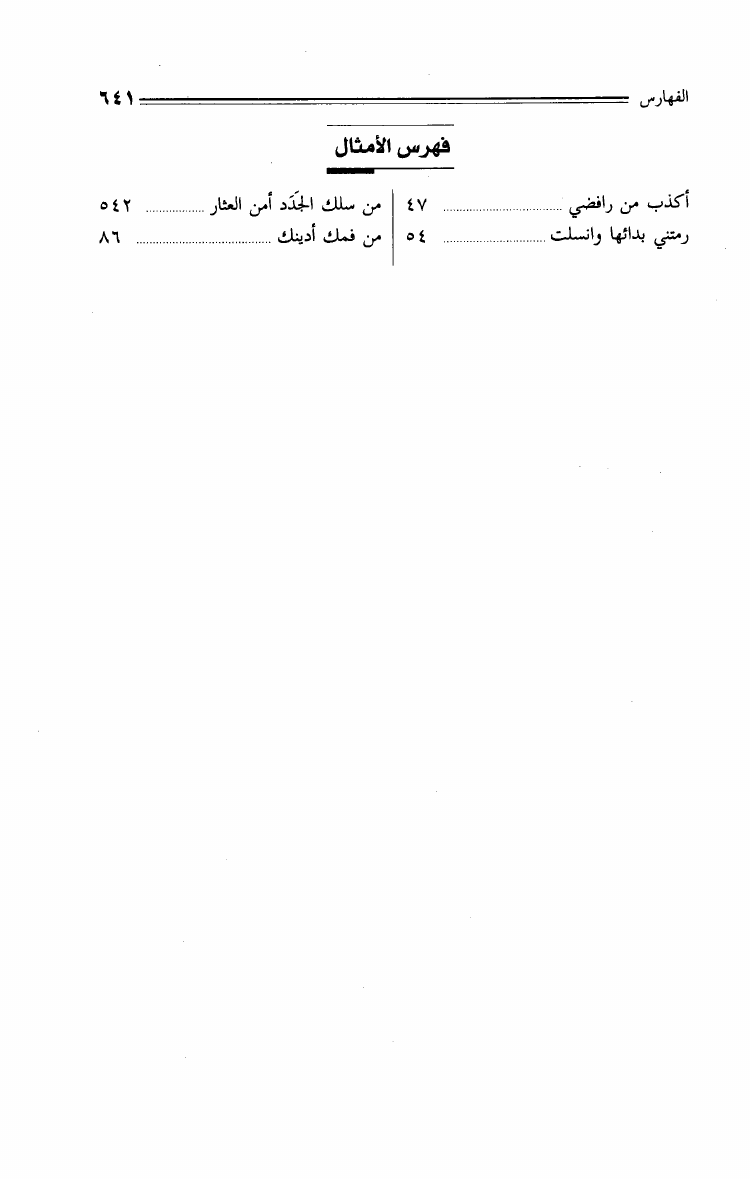 الفهارس ٦٤١
فهرس الأمثال
أكذب من رافضي ٤٧
رمتني بدائها وانسلت ٥٤
من سلك الجَدَد أمن العثار ٥٤٢
من فمك أدينك ٨٦